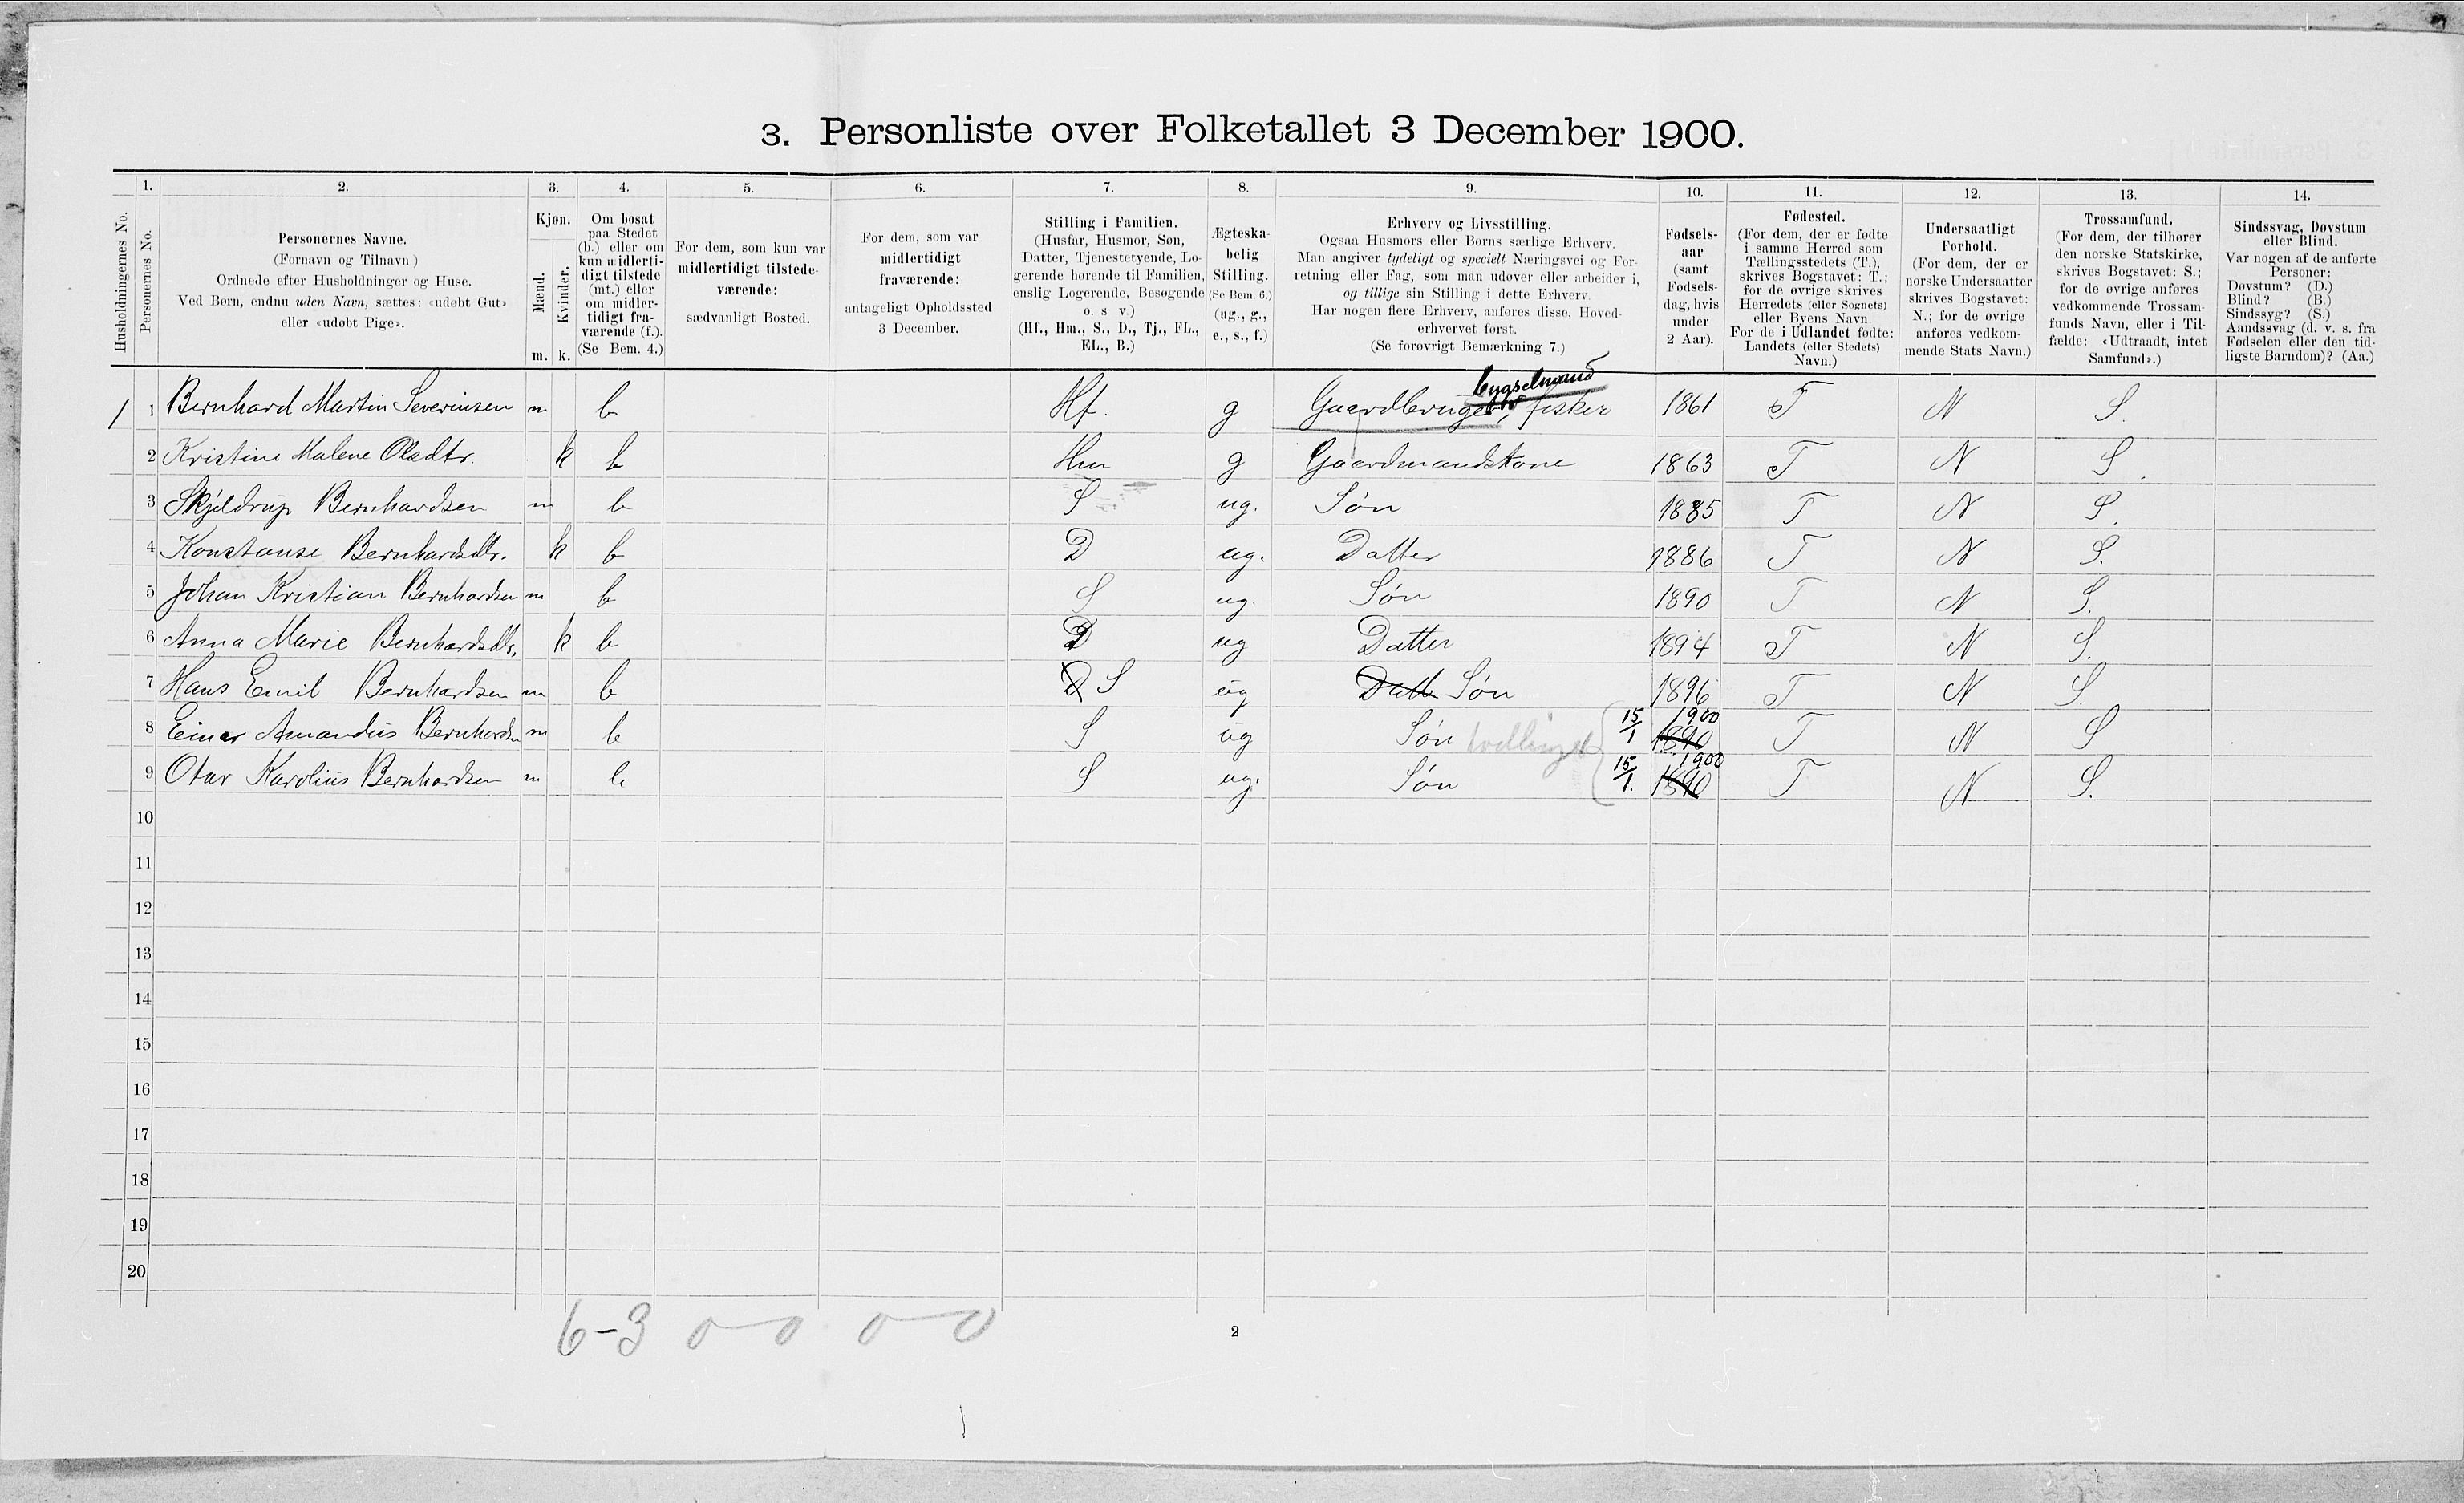 3. Personliste over Folketallet 3 December 1900.
1. 2. 3. 4. 5. 6. 7. 8. 9. 10. 11. 12. 13. 14.
Husholdningernes No.
Personernes No.
Personernes Navne.
(Fornavn og Tilnavn)
Ordnede efter Husholdninger og Huse.
Ved Børn, endnu uden Navn, sættes: «udøbt Gut»
eller «udøbt Pige».
Kjøn.
Mænd.
Kvinder.
m. k.
Om bosat
paa Stedet
(b.) eller om
kun midlerti-
digt tilstede
(mt.) eller
om midler-
tidigt fra-
værende (f.).
(Se Bem. 4.)
For dem, som kun var
midlertidigt tilstede-
værende:
sædvanligt Bosted.
For dem, som var
midlertidigt
fraværende:
antageligt Opholdssted
3 December.
Stilling i Familien.
(Husfar, Husmor, Søn,
Datter, Tjenestetyende, Lo-
gerende hørende til Familien,
enslig Logerende, Besøgende
o. s v.)
(Hf., Hm., S., D., Tj., FL.,
EL., B.)
Ægteska-
belig
Stilling.
(Se Bem. 6.)
(ug., g.,
e., s., f.)
Erhverv og Livsstilling.
Ogsaa Husmors eller Børns særlige Erhverv.
Man angiver tydeligt og specielt Næringsvei og For-
retning eller Fag, som man udøver eller arbeider i,
og tillige sin Stilling i dette Erhverv.
Har nogen flere Erhverv, anføres disse, Hoved-
erhvervet først.
(Se forøvrigt Bemærkning 7.)
Fødsels-
aar
(samt
Fødsels-
dag, hvis
under
2 Aar).
Fødested.
(For dem, der er fødte
i samme Herred som
Tællingsstedets (T.),
skrives Bogstavet: T.;
for de øvrige skrives
Herredets (eller Sognets)
eller Byens Navn
For de i Udlandet fødte:
Landets (eller Stedets)
Navn.)
Undersaatligt
Forhold.
(For dem, der er
norske Undersaatter
skrives Bogstavet:
N.; for de øvrige
anføres vedkom-
mende Stats Navn.)
Trossamfund.
(For dem, der tilhører
den norske Statskirke,
skrives Bogstavet: S.;
for de øvrige anføres
vedkommende Trossam-
funds Navn, eller i Til-
fælde: «Udtraadt, intet
Samfund».)
Sindssvag, Døvstum
eller Blind.
Var nogen af de anførte
Personer:
Døvstum? (D.)
Blind? (B.)
Sindssyg? (S.)
Aandssvag (d. v. s. fra
Fødselen eller den tid-
ligste Barndom)? (Aa.)
bygselmand 5
1 1 Bernhard Martin Severinsen m b Hf. g Gaardbruger, fisker 1861 T N S.
2 Kristine Malene Olsdtr. k b Hm g Gaardmandskone 1863 T N S.
3 Skjeldrup Bernhardsen m b S ug. Søn 1885 T N S.
4 Konstanse Bernhardsdtr. k b D ug. Datter 1886 T N S.
5 Johan Kristian Bernhardsen m b S ug. Søn 1890 T N S.
6 Anna Marie Bernhardsdtr. k b D ug Datter 1894 T N S.
7 Hans Emil Bernhardsen m b D S ug Datt Søn 1896 T N S.
8 Einar Amandus Bernhardsen m b S ug Søn tvillinger 15/1 1900 1890 T N S
9 Otar Karolius Bernhardsen m b S ug. Søn 15/1. 1900 1890 T N S.
10
11
12
13
14
15
16
17
18
19
20
6-3 0-0 0-0
2